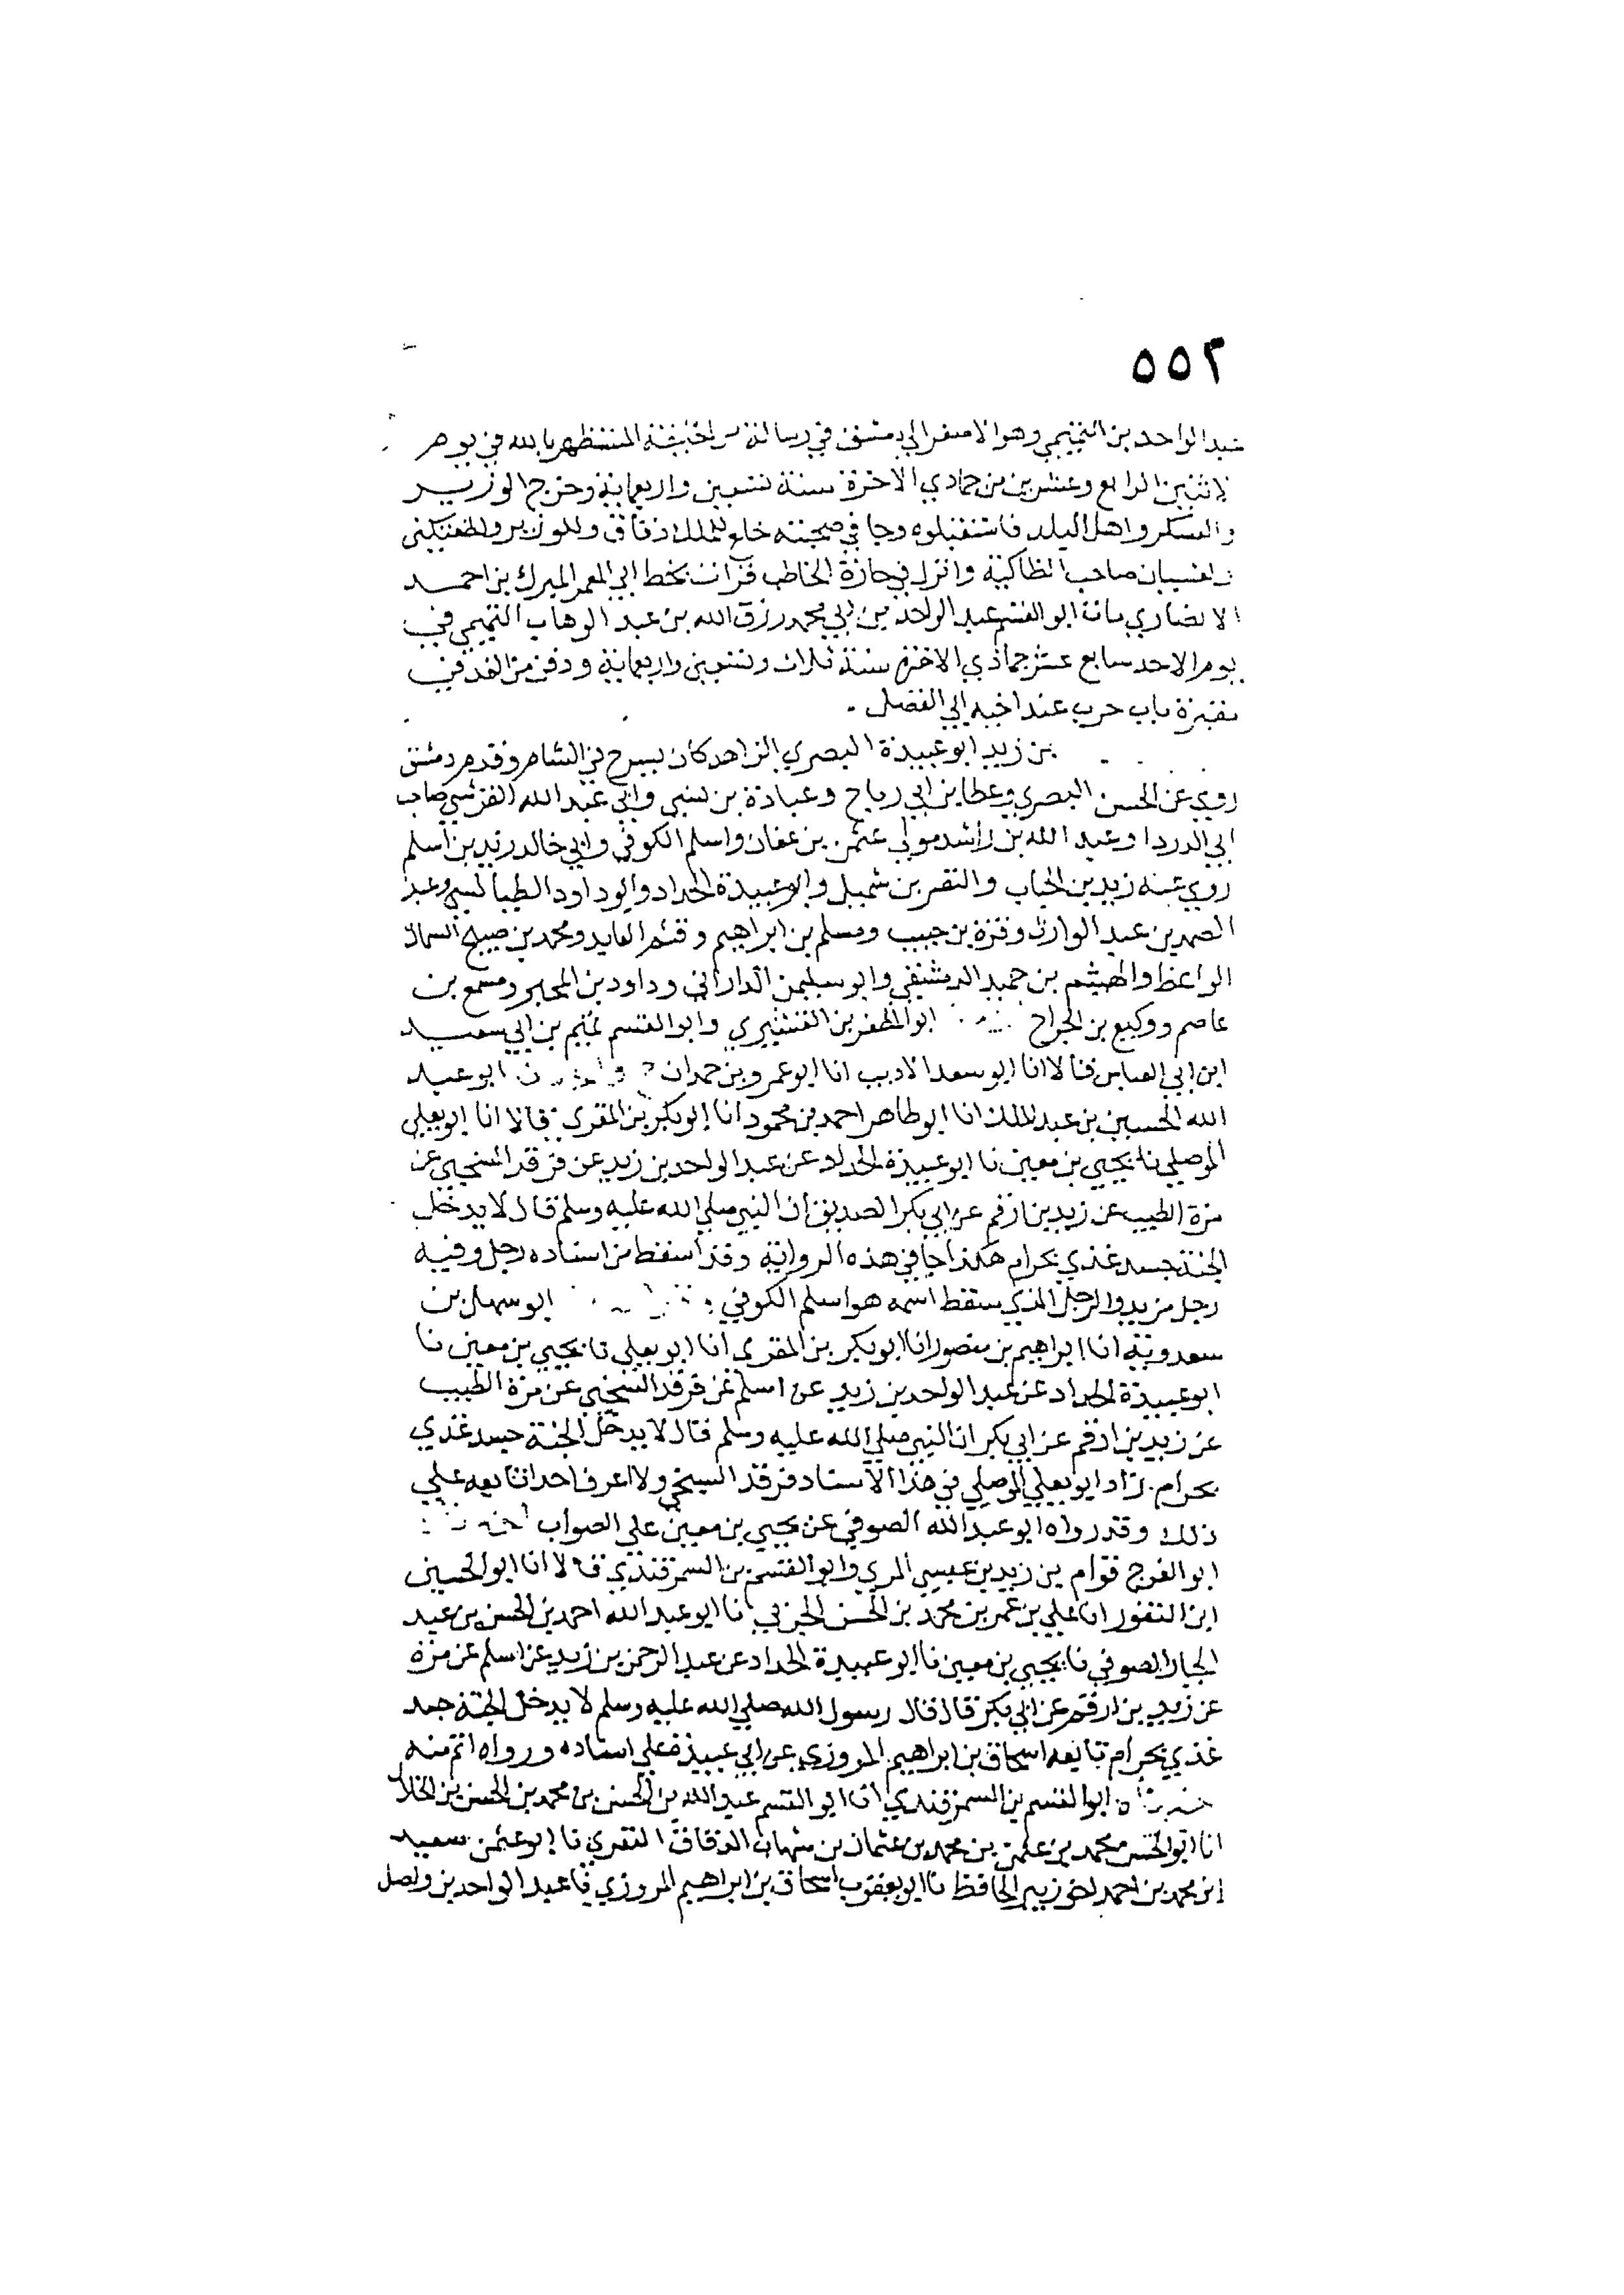 ٥٥٢
عبد الواحد بن التميمي وهو الاصغر الي دمشق في رسالة من الخليفة المستظهر بالله في يوم
الاثنين الرابع وعشرين من جمادي الاخرة سنة تسعين واربعماية وخرج الوزير
والعسكر واهل البلد فاستقبلوه وجا في صحبته خلع للملك دقاق وللوزير ولطغتكين
صاحب انطاكية وانزل في حارة الخاطب قرات بخط ابي المعمر المبرك بن احمد
الانصاري مات ابو القسم عبد الواحد بن ابي محمد رزق الله بن عبد الوهاب التميمي في
يوم الاحد سابع عشر جمادي الاخرة سنة ثلاث وتسعين واربعماية ودفن من الغد في
مقبرة باب حرب عند اخيه ابي الفضل .
بن زيد ابو عبيدة البصري الزاهد كان يسرح في الشام وقدم دمشق
روي عن الحسن البصري وعطا بن ابي رباح وعبادة بن نسي وابي عبد الله القرشي صاحب
ابي الدردا وعبد الله بن راشد مولي عثمن بن عفان واسلم الكوفي وابي خالد زيد بن اسلم
روي عنه زيد بن الحباب والنضر بن شميل وابو عبيدة الحداد وابو داود الطيالسي وعبد
الصمد بن عبد الوارث وقرة بن حبيب ومسلم بن ابراهيم وقثم العابد ومحمد بن صبيح السماك
الواعظ والهيثم بن حميد الدمشقي وابو سليمن الداراني وداود بن المحبر ومسمع بن
عاصم ووكيع بن الجراح ابو المظفر بن القشيري وابو القسم تميم بن ابي سعيد
ابن ابي العباس قالا انا ابو سعد الاديب انا ابو عمرو بن حمدان ح ابو عبد
الله الحسين بن عبد الملك انا ابو طاهر احمد بن محمود انا ابو بكر بن المقري قالا انا ابو يعلي
الموصلي نا يحيي بن معين نا ابو عبيدة الحداد عن عبد الواحد بن زيد عن فرقد السبخي عن
مرة الطيب عن زيد بن ارقم عن ابي بكر الصديق ان النبي صلي الله عليه وسلم قال لا يدخل
الجنة جسد غذي بحرام هكذا جا في هذه الرواية وقد اسقط من اسناده رجل وفيه
رجل مزيد والرجل الذي سقط اسمه هو اسلم الكوفي ابو سهل بن
سعدوية انا ابراهيم بن منصور انا ابو بكر بن المقري انا ابو يعلي نا يحيي بن معين نا
ابو عبيدة الحداد عن عبد الواحد بن زيد عن اسلم عن فرقد السبخي عن مرة الطيب
عن زيد بن ارقم عن ابي بكر ان النبي صلي الله عليه وسلم قال لا يدخل الجنة جسد غذي
بحرام . زاد ابو يعلي الموصلي في هذا الاسناد فرقد السبخي ولا اعرف احدا تابعه علي
ذلك وقد رواه ابو عبد الله الصوفي عن يحيي بن معين علي الصواب
ابو الفرج قوام بن زيد بن عيسي المري وابو القسم بن السمرقندي قالا انا ابو الحسين
ابن النقور انا علي بن عمر بن محمد بن الحسن الحربي نا ابو عبد الله احمد بن الحسن بن عبد
الجبار الصوفي نا يحيي بن معين نا ابو عبيدة الحداد عن عبد الرحمن بن زيد عن اسلم عن مرة
عن زيد بن ارقم عن ابي بكر قال قال رسول الله صلي الله عليه وسلم لا يدخل الجنة جسد
غذي بحرام تابعه اسحاق بن ابراهيم المروزي عن ابي عبيدة علي اسناده ورواه اتم منه
ابو القسم بن السمرقندي انا ابو القسم عبد الله بن الحسن بن محمد بن الحسن بن الخلال
انا ابو الحسن محمد بن عثمن بن محمد بن عثمان بن شهاب الدقاق النفري نا ابو عثمن سعيد
ابن محمد بن احمد اخو زبير الحافظ نا ابو يعقوب اسحاق بن ابراهيم المروزي نا عبد الواحد بن واصل